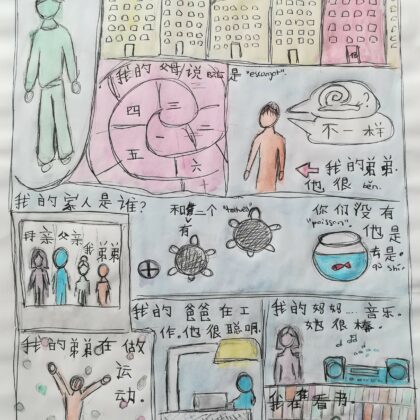 我的父母说 是 "escargot".
四 三
五 一 六
?
不一样
我的弟弟.
他很 bèn.
我的家人是谁?
母亲 父亲
我 弟弟
和有二个
有
你们没有
"poisson".
他是
去是.
qù shì.
我的爸爸在工
作.他很聪明.
我的妈妈.... 音乐.
她很棒.
我的弟弟在做
运
动.
我在看书.